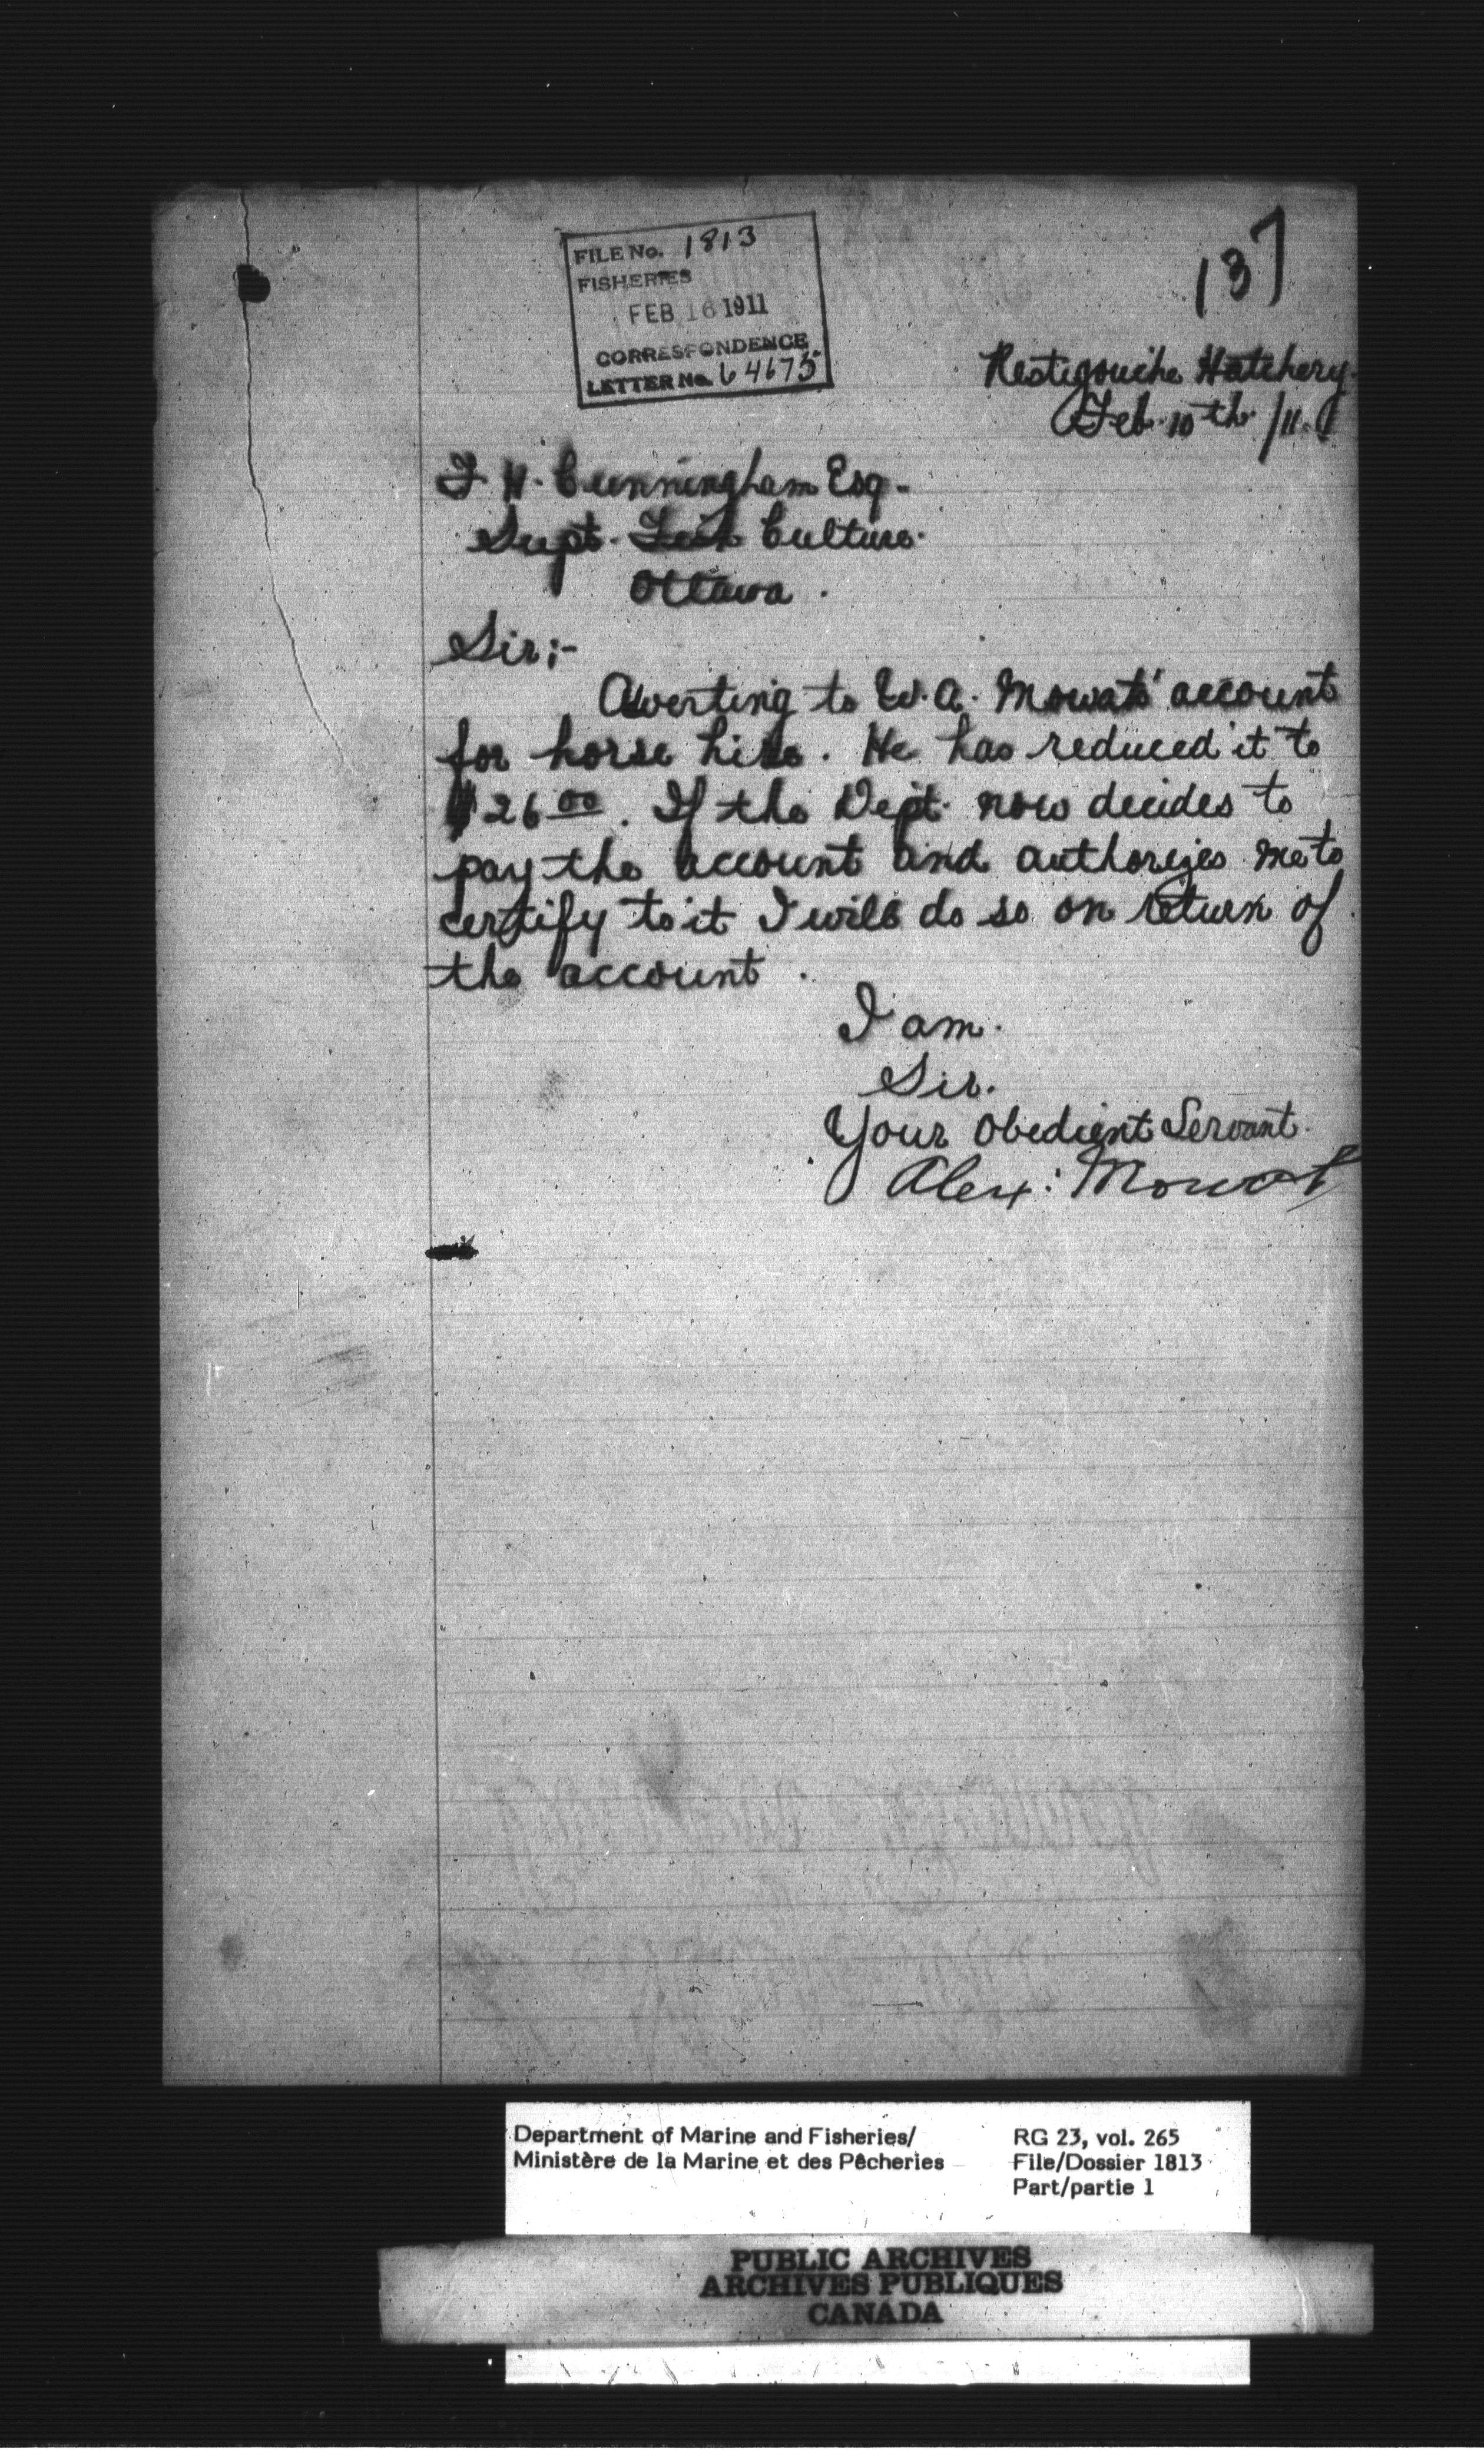 FILE No. 1813
FISHERIES
FEB 16 1911
CORRESPONDENCE
LETTER No. 64675
137
Restigouche Hatchery.
Feb. 10th /11.
F. H. Cunningham Esq.
Supt. Fish Culture.
Ottawa.
Sir;-
Averting to W. A. Mowats' account
for horse hire. He has reduced it to
$26 00. If the Dept. now decides to
pay the account and authorizes me to
certify to it I will do so on return of
the account.
I am.
Sir.
Your Obedient Servant.
Alex: Mowat
Department of Marine and Fisheries/
Ministère de la Marine et des Pêcheries
RG 23, vol. 265
File/Dossier 1813
Part/partie 1
PUBLIC ARCHIVES
ARCHIVES PUBLIQUES
CANADA